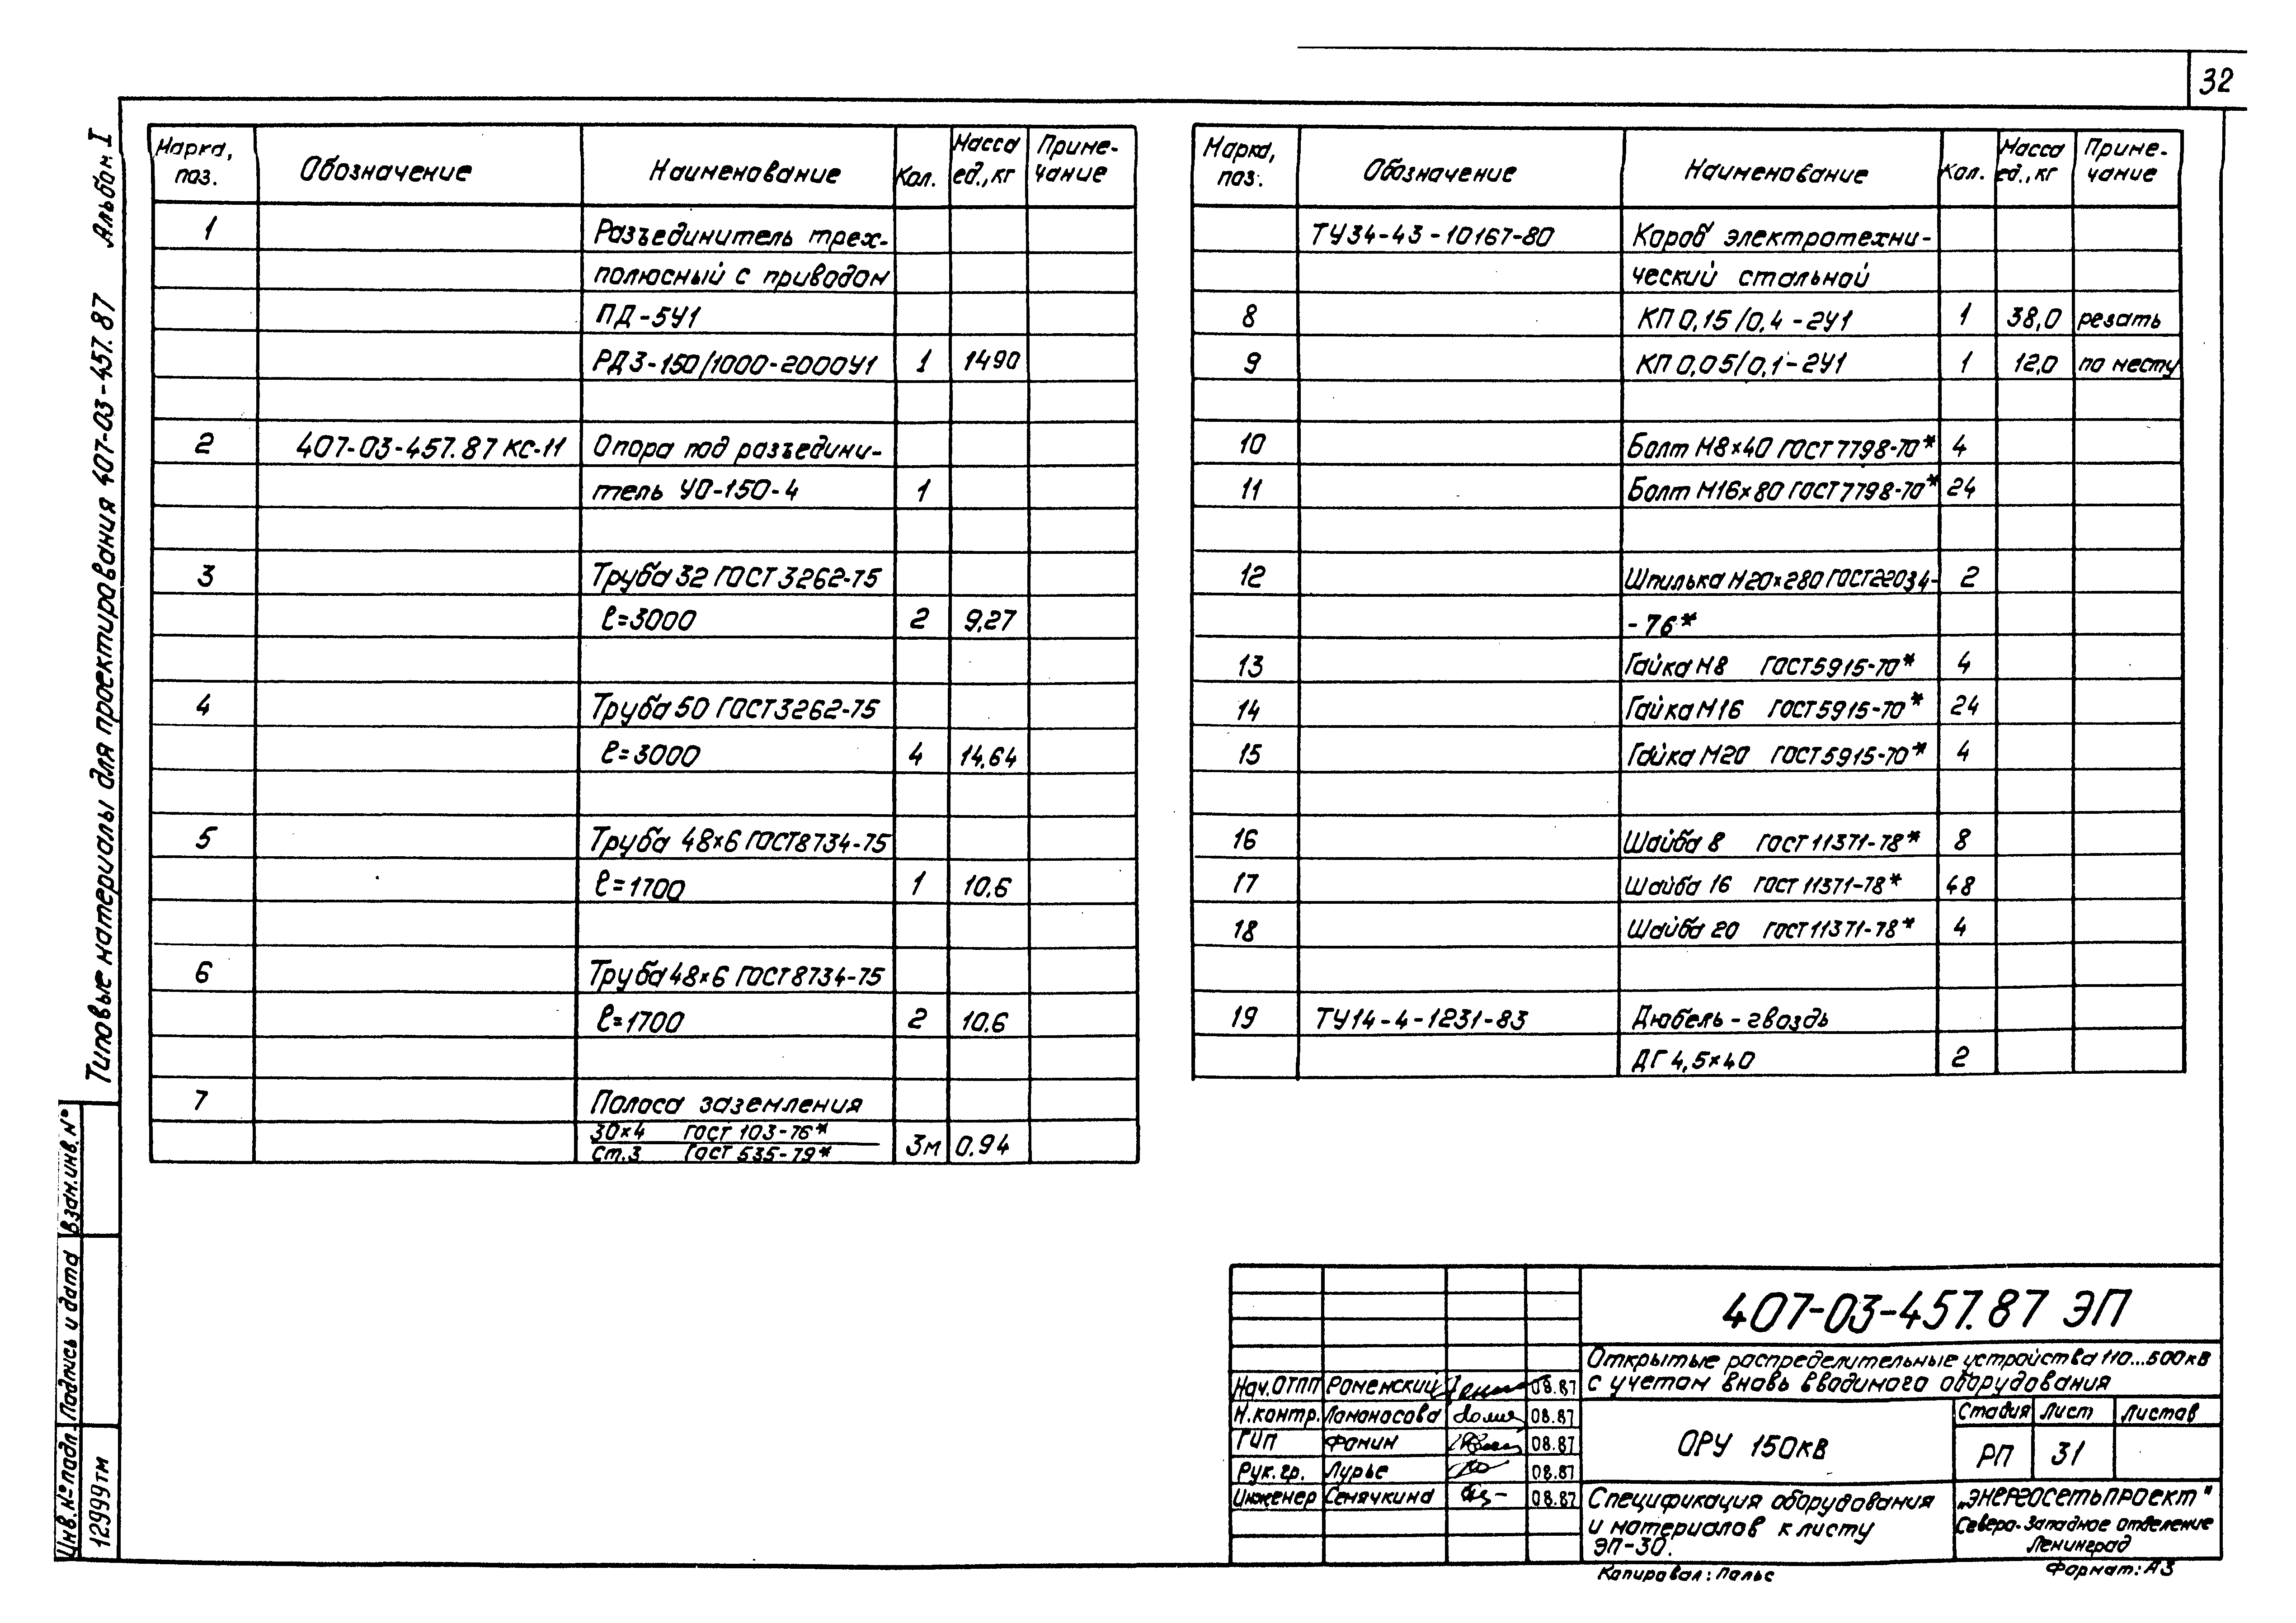 32
Типовые материалы для проектирования 407-03-457.87 Альбом I
Марка, поз. Обозначение Наименование Кол. Масса ед., кг Приме-чание
1 Разъединитель трех-
полюсный с приводом
ПД-5У1
РДЗ-150/1000-2000У1 1 1490
2 407-03-457.87 КС-11 Опора под разъедини-
тель УО-150-4 1
3 Труба 32 ГОСТ 3262-75
ℓ=3000 2 9,27
4 Труба 50 ГОСТ 3262-75
ℓ=3000 4 14,64
5 Труба 48×6 ГОСТ 8734-75
ℓ=1700 1 10,6
6 Труба 48×6 ГОСТ 8734-75
ℓ=1700 2 10,6
7 Полоса заземления
30×4 ГОСТ 103-76*
Ст.3 ГОСТ 535-79* 3м 0,94
Марка, поз. Обозначение Наименование Кол. Масса ед., кг Приме-чание
ТУ34-43-10167-80 Короб электротехни-
ческий стальной
8 КП 0,15/0,4-2У1 1 38,0 резать
9 КП 0,05/0,1-2У1 1 12,0 по месту
10 Болт М8×40 ГОСТ 7798-70* 4
11 Болт М16×80 ГОСТ 7798-70* 24
12 Шпилька М20×280 ГОСТ 22034- 2
-76*
13 Гайка М8 ГОСТ 5915-70* 4
14 Гайка М16 ГОСТ 5915-70* 24
15 Гайка М20 ГОСТ 5915-70* 4
16 Шайба 8 ГОСТ 11371-78* 8
17 Шайба 16 ГОСТ 11371-78* 48
18 Шайба 20 ГОСТ 11371-78* 4
19 ТУ14-4-1231-83 Дюбель-гвоздь
ДГ 4,5×40 2
Взам.инв.№
Подпись и дата
Инв.№подл. 12999тм
407-03-457.87 ЭП
Открытые распределительные устройства 110...500кВ
с учетом вновь вводимого оборудования
Нач.ОТПП Роменский 08.87
Н.контр. Ломоносова 08.87
ГИП Фомин 08.87
Рук.гр. Лурье 08.87
Инженер Семячкина 08.87
ОРУ 150кВ
Стадия Лист Листов
РП 31
Спецификация оборудования
и материалов к листу
ЭП-30.
„Энергосетьпроект"
Северо-Западное отделение
Ленинград
Копировал: Пальс
Формат: А3